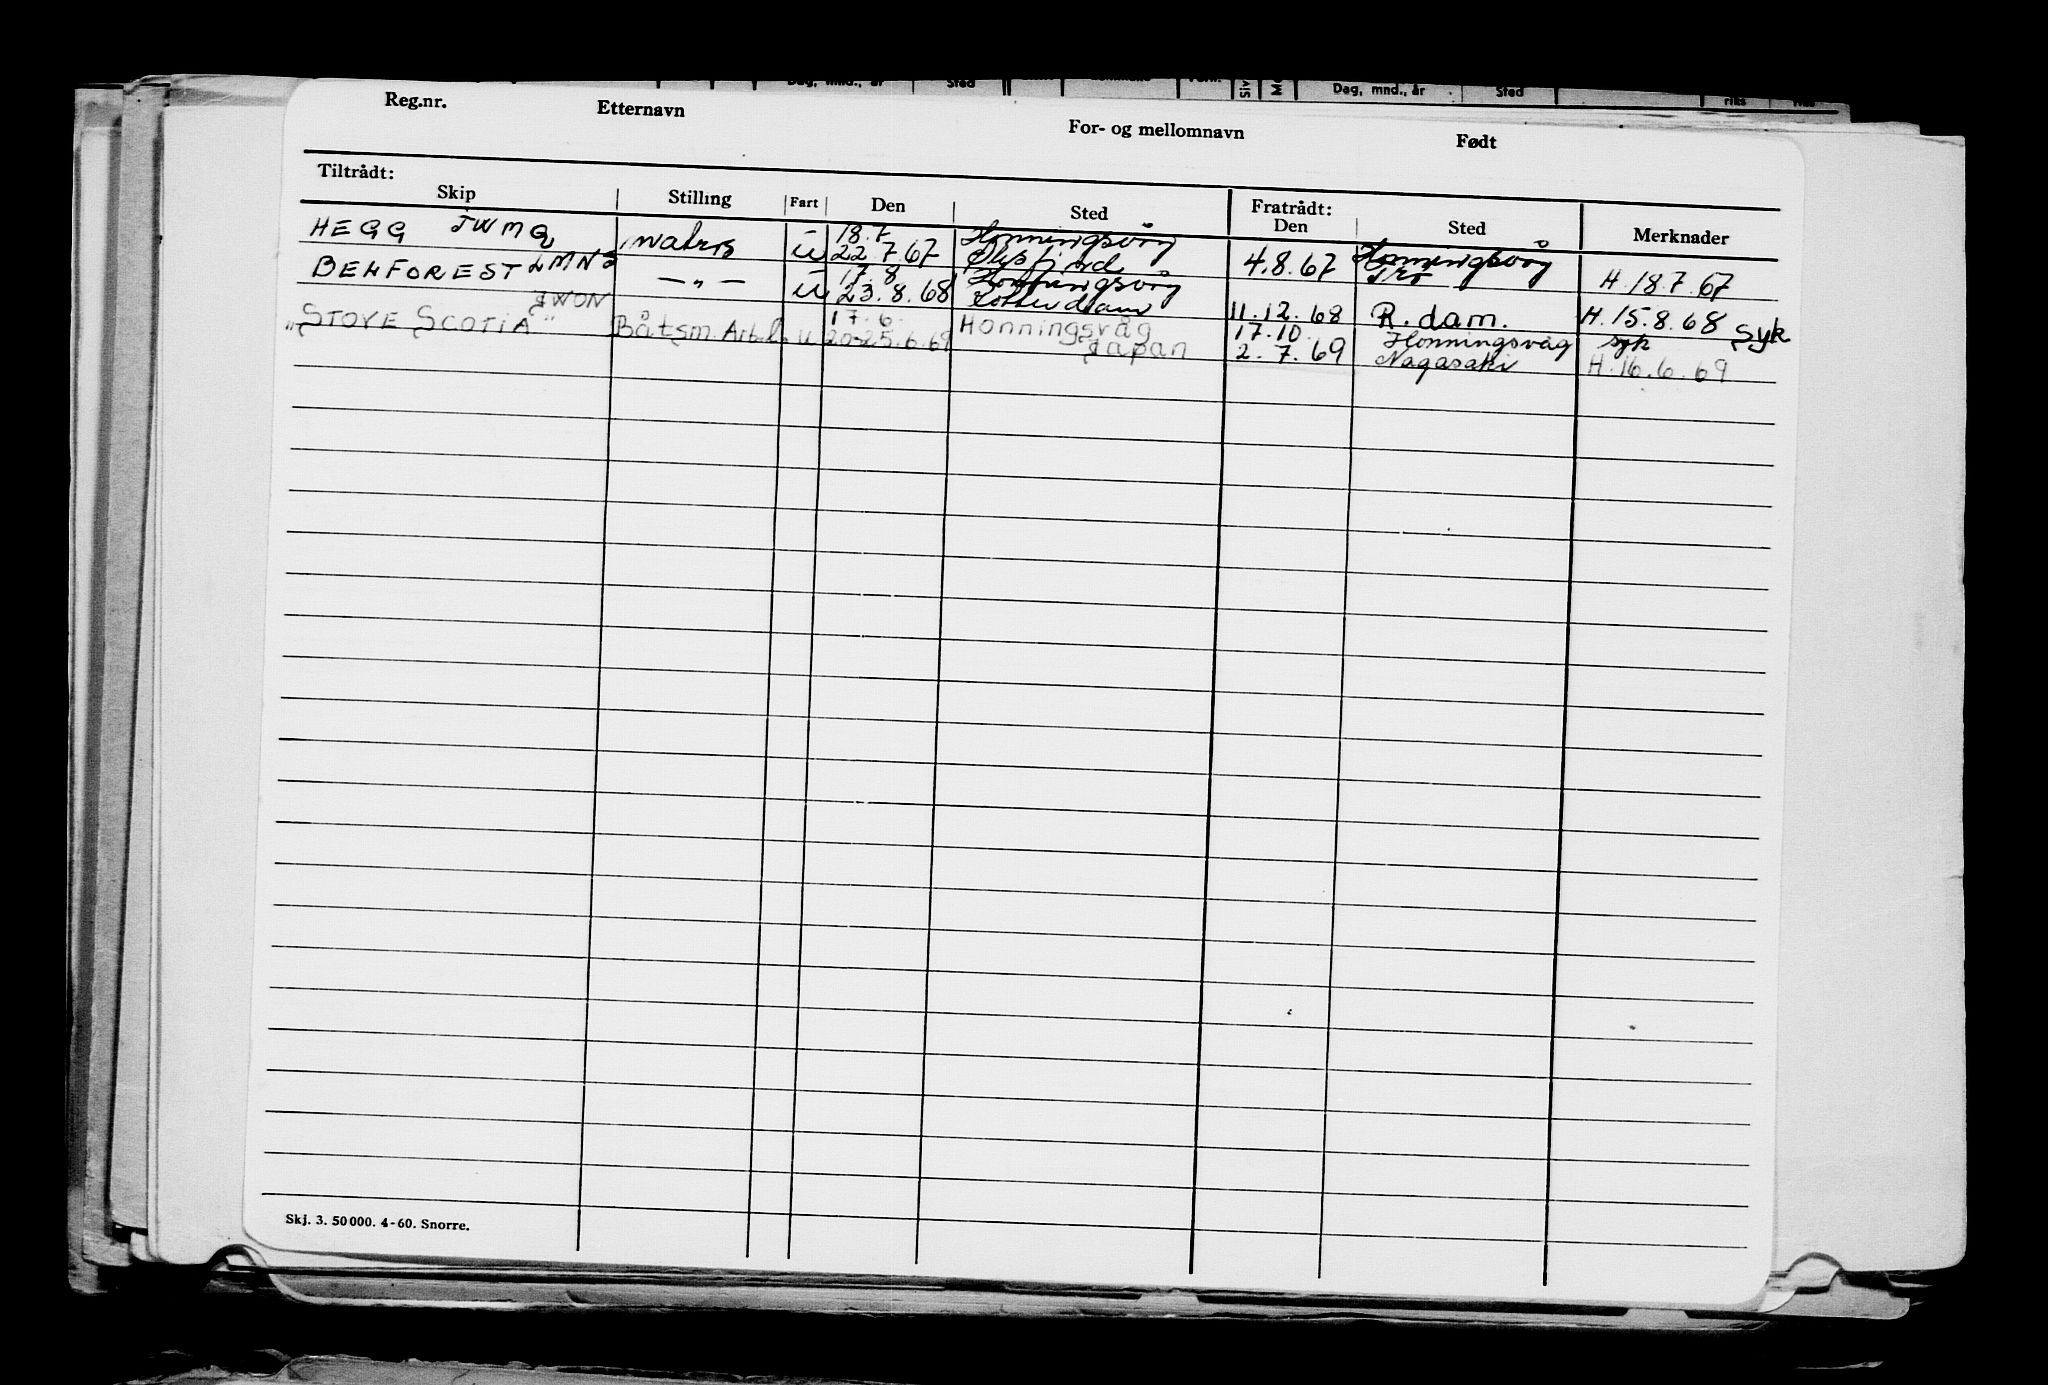 Dag, mnd., år Sted Dag, mnd., år Sted
Reg.nr. Etternavn For- og mellomnavn Født
Tiltrådt: Fratrådt:
Skip Stilling Fart Den Sted Den Sted Merknader
HEGG JWMQ matros u 18.7 Honningsvåg
22.7.67 4.8.67 Honningsvåg H. 18.7.67
BEHFOREST LMNB — " — u 17.8 Honningsvåg
23.8.68 Rotterdam 11.12.68 R.dam. H. 15.8.68 syk
"STOVE SCOTIA" JWON Båtsm. Arb.l. u 17.6. Honningsvåg 17.10. Honningsvåg syk
20-25.6.69 Japan 2.7.69 Nagasaki H. 16.6.69
Skj. 3. 50 000. 4-60. Snorre.